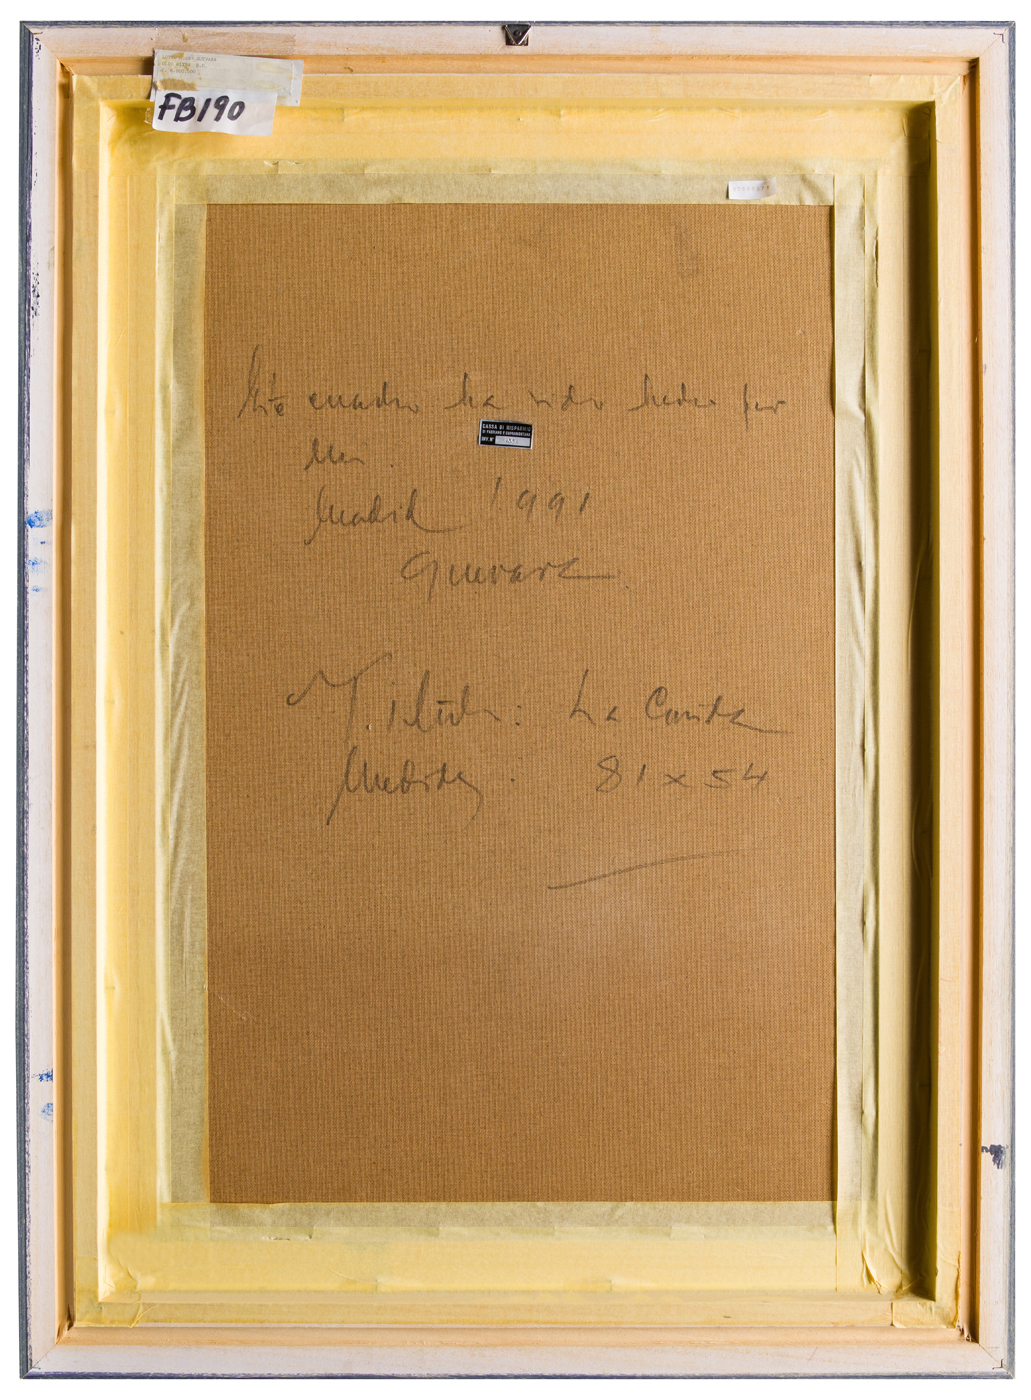 FB190
Este cuadro ha sido hecho por
Madrid 1991
Guevara
Título: La Caída
Medidas: 81 x 54
CASSA DI RISPARMIO
DI FABRIANO E CUPRAMONTANA
INV. N°